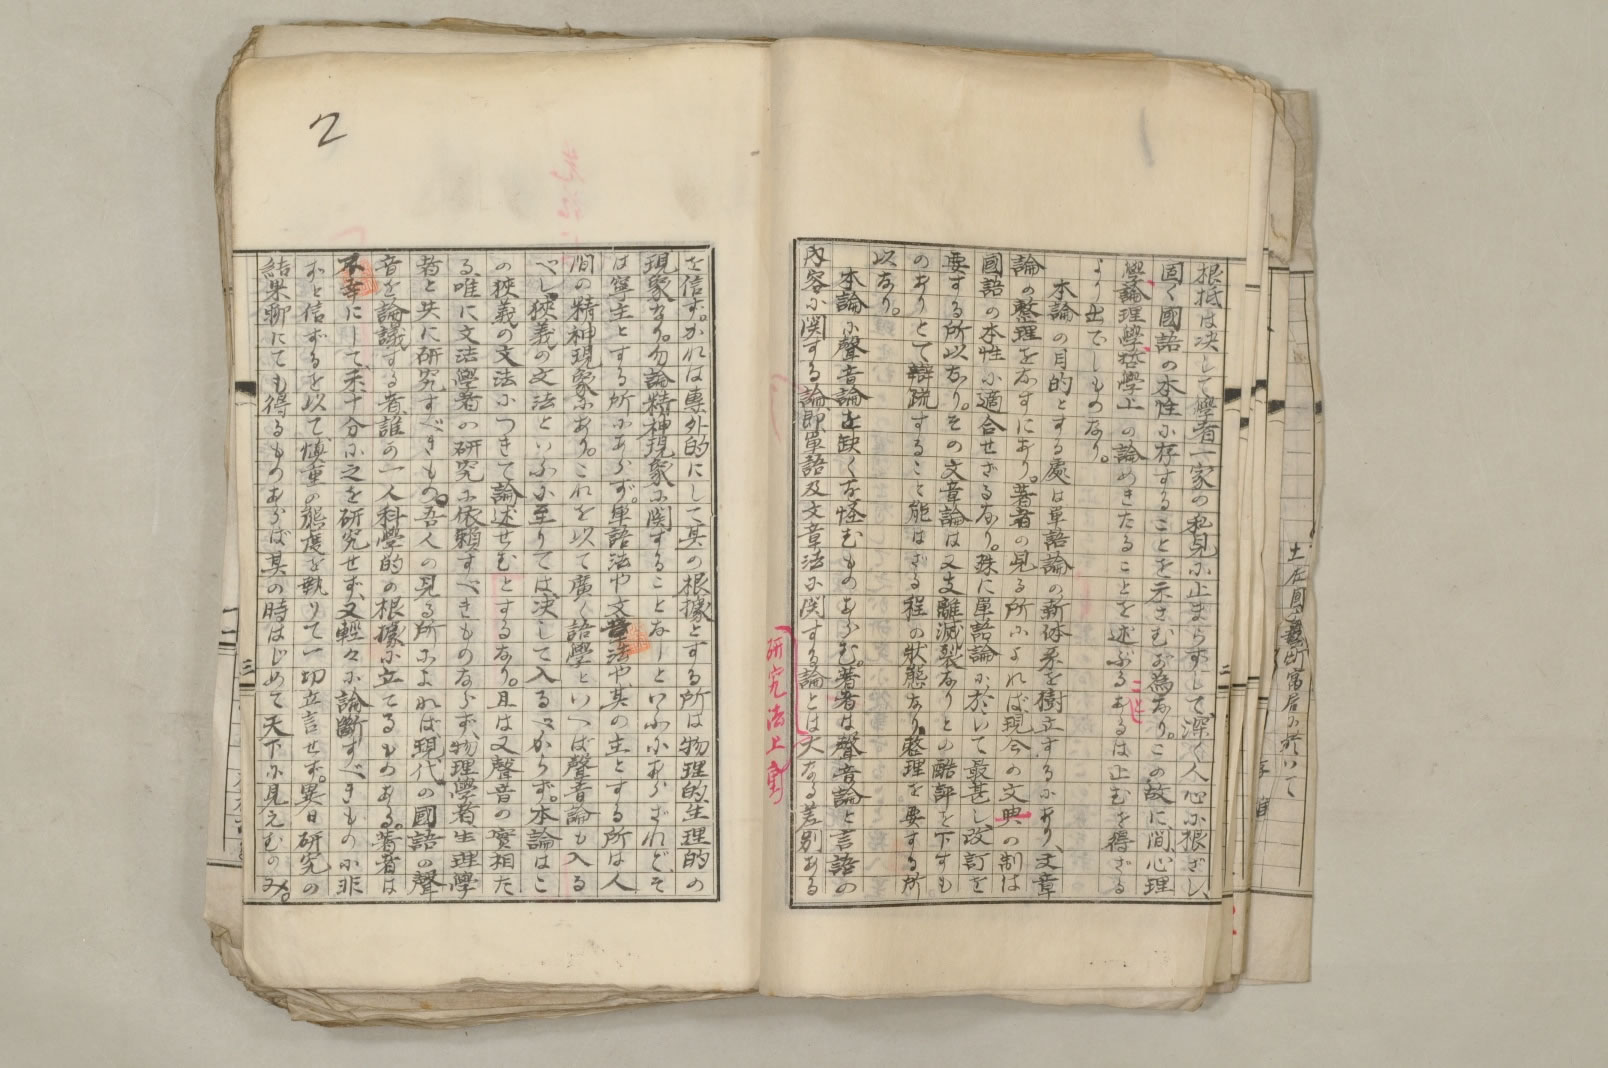 根抵は决して學者一家の私見に止まらずして、深く人心に根ざし、
固く國語の本性に存することを示さむが為なり。この故に、間心理
學論理學哲學上の論めきたることを述ぶるあるは止むを得ざる
より出でしものなり。
本論の目的とする處は單語論の新体系を樹立するにあり、文章
論の整理をなすにあり。著者の見る所によれば現今の文典の制は
國語の本性に適合せざるなり。殊に單語論に於いて最甚し、改訂を
要する所以なり。その文章論は又支離滅裂なりとの酷評を下すも
のありとて辯疏すること能はざる程の狀態なり、整理を要する所
以なり。
本論に聲音論を缺くを怪むものあらむ。著者は聲音論と言語の
內容に関する論、即單語及文章法に関する論とは大なる差別ある
研究法上、寧
二
土左国安藝町寓居に於いて
2
を信ず。かれは專外的にして其の根據とする所は物理的生理的の
現象なり。勿論精神現象に関することなしといふにあらざれど、そ
は寧主とする所にあらず。單語法や文章法や其の主とする所は人
間の精神現象にあり。これを以て廣く語學といへば聲音論も入る
べし、狹義の文法といふに至りては决して入るべからず。本論はこ
の狹義の文法につきて論述せむとするなり。且は又聲音の實相た
る、唯に文法學者の研究に依賴すべきものならず、物理學者生理學
者と共に研究すべきもの。吾人の見る所によれば現代の國語の聲
音を論議する者、誰の一人科學的の根據に立てるものある。著者は
不幸にして未十分に之を研究せず、又輕々に論斷すべきものに非
ずと信ずるを以て愼重の態度を執りて一切立言せず。異日研究の
結果聊にても得るものあらば其の時はじめて天下に見えむのみ。
三